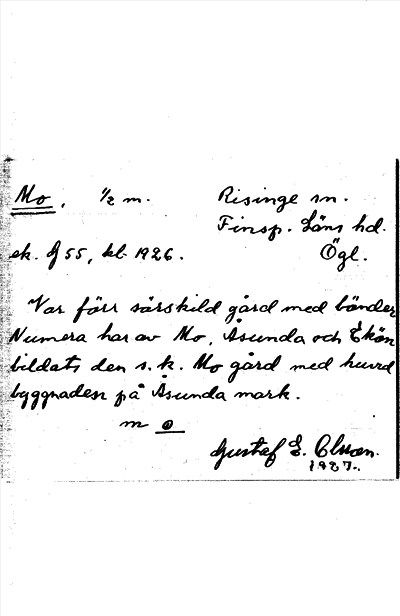 Mo, 1/2 m. Risinge sn.
Finsp. Läns hd.
ek. J 55, kbl 1926. Ögl.
Var förr särskild gård med bönder
Numera har av Mo, Åsunda och Ekön
bildats den s.k. Mo gård med huvud
byggnaden på Åsunda mark.
m o
Gustaf E. Olsson.
1927.